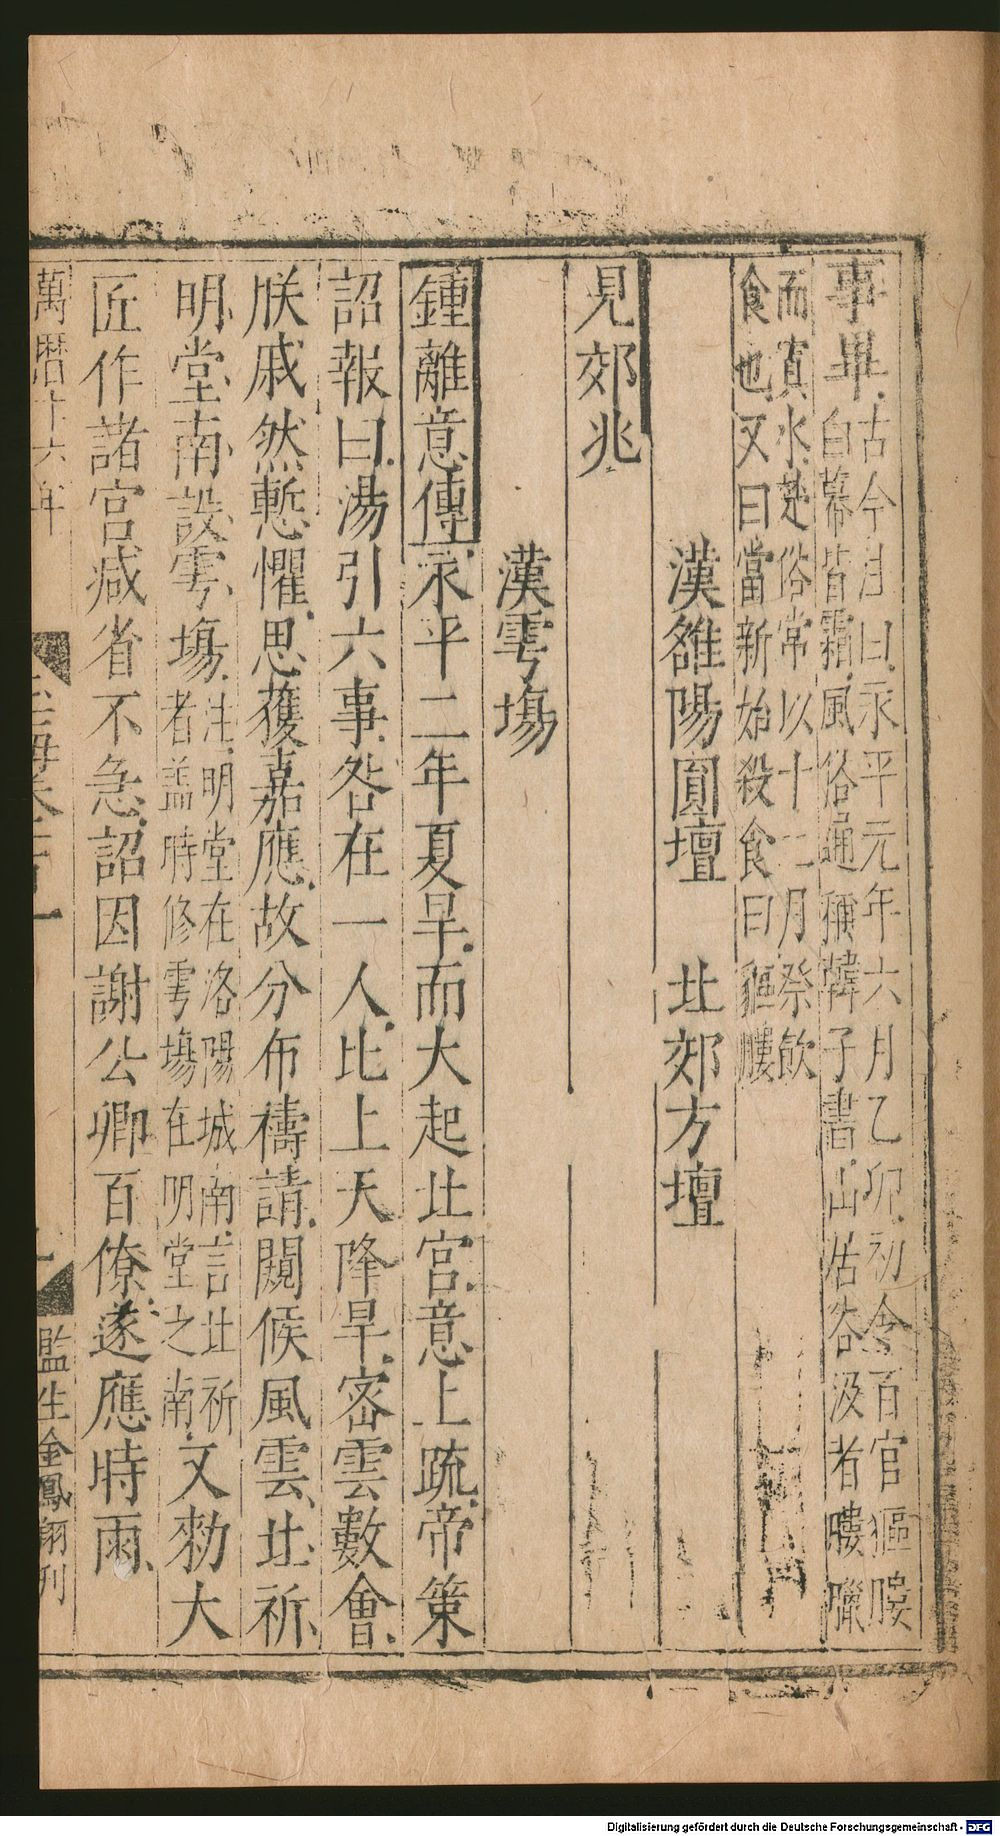 事畢古今注曰永平元年六月乙卯初令百官貙膢
白幕皆霜風俗通稱韓子書山居谷汲者膢臘
而買水楚俗常以十二月祭飲
食也又曰嘗新始殺食曰貙膢
漢雒陽圜壇　北郊方壇
見郊兆
漢雩場
鍾離意傳永平二年夏旱而大起北宮意上疏帝策
詔報曰湯引六事咎在一人比上天降旱密雲數會
朕戚然慙懼思獲嘉應故分布禱請闚候風雲北祈
明堂南設雩場注明堂在洛陽城南言北祈
者蓋時修雩場在明堂之南又勑大
匠作諸宮減省不急詔因謝公卿百僚遂應時雨
萬曆十六年
玉海卷
監生金鳳翔刊
Digitalisierung gefördert durch die Deutsche Forschungsgemeinschaft - DFG